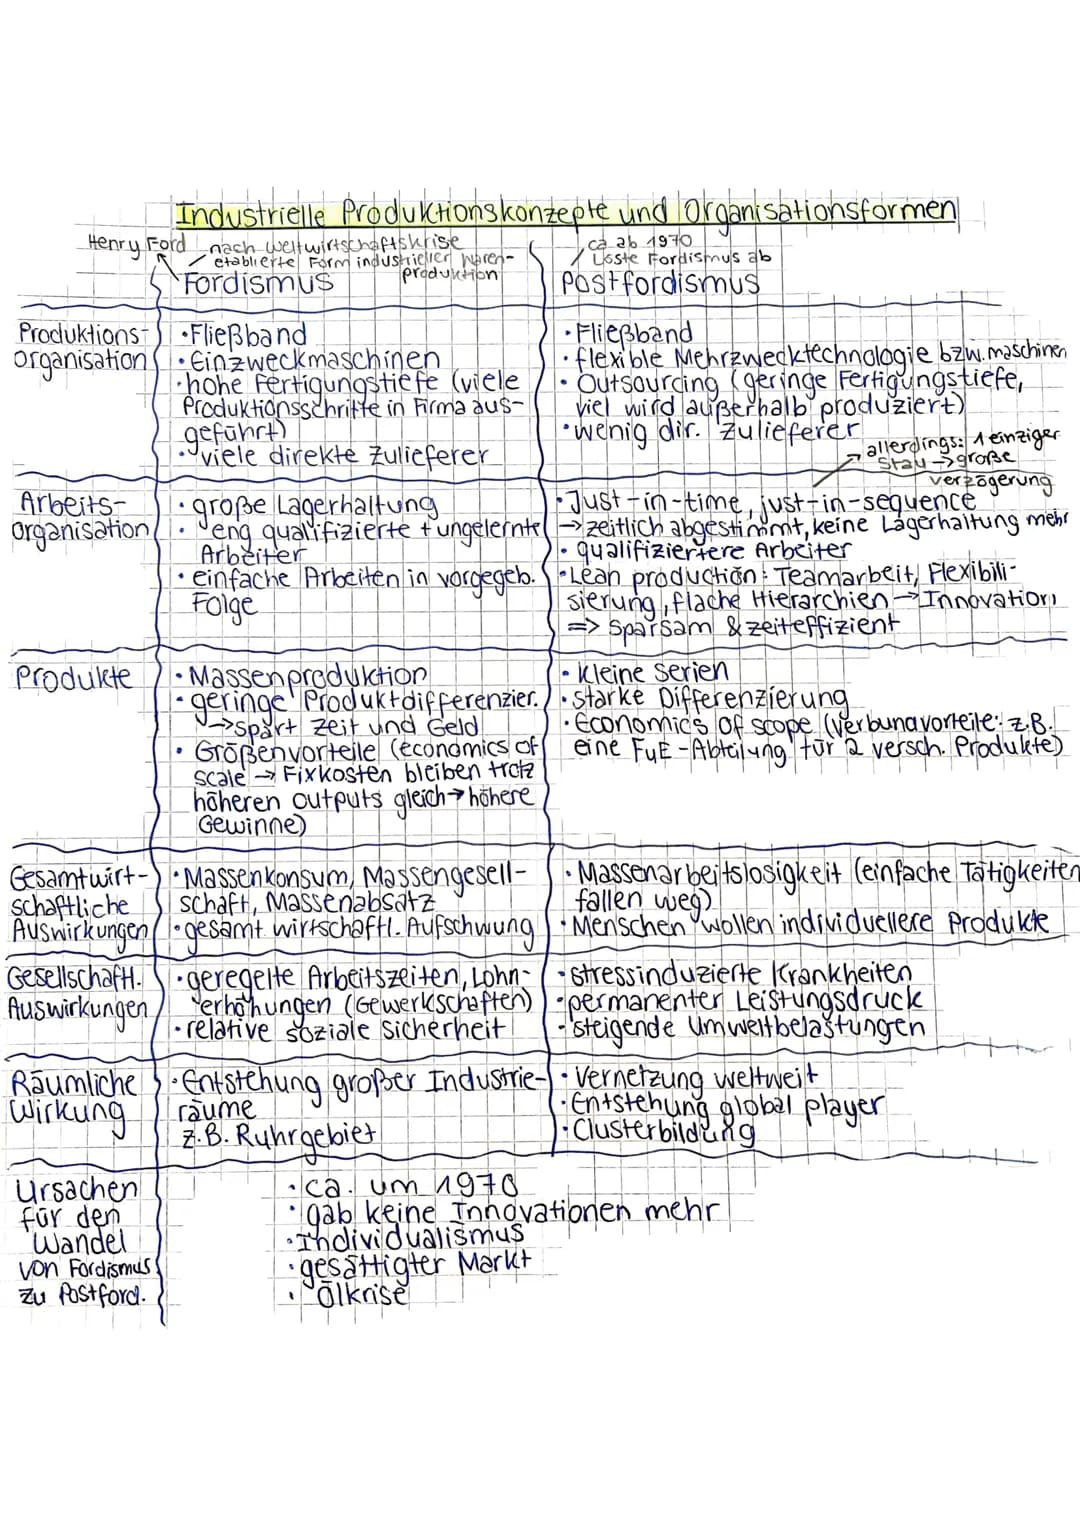 Industrielle Produktionskonzepte und Organisationsformen
Henry Ford
nach Weltwirtschaftskrise
etablierte Form industrieller Waren-
produktion
Fordismus
ca. ab 1970
Löste Fordismus ab
Postfordismus
Produktions-
organisation
• Fließband
• Einzweckmaschinen
• hohe Fertigungstiefe (viele
Produktionsschritte in Firma aus-
geführt)
• viele direkte Zulieferer
• Fließband
• flexible Mehrzwecktechnologie bzw. maschinen
• Outsourcing (geringe Fertigungstiefe,
viel wird außerhalb produziert)
• wenig dir. Zulieferer
allerdings: 1 einziger
Stau → große
verzögerung
Arbeits-
organisation
• große Lagerhaltung
• eng qualifizierte + ungelernte
Arbeiter
• einfache Arbeiten in vorgegeb.
Folge
• Just-in-time, just-in-sequence
→ zeitlich abgestimmt, keine Lagerhaltung mehr
• qualifiziertere Arbeiter
• Lean production: Teamarbeit, Flexibili-
sierung, flache Hierarchien → Innovation
=> sparsam & zeiteffizient
Produkte
• Massenproduktion
• geringe Produktdifferenzier.
→ spart Zeit und Geld
• Größenvorteile (economics of
scale → Fixkosten bleiben trotz
höheren outputs gleich → höhere
Gewinne)
• kleine Serien
• starke Differenzierung
• Economics of scope (Verbundvorteile: z.B.
eine FuE-Abteilung für 2 versch. Produkte)
Gesamtwirt-
schaftliche
Auswirkungen
• Massenkonsum, Massengesell-
schaft, Massenabsatz
• gesamt wirtschaftl. Aufschwung
• Massenarbeitslosigkeit (einfache Tätigkeiten
fallen weg)
• Menschen wollen individuellere Produkte
Gesellschaftl.
Auswirkungen
• geregelte Arbeitszeiten, Lohn-
erhöhungen (Gewerkschaften)
• relative soziale Sicherheit
• stressinduzierte Krankheiten
• permanenter Leistungsdruck
• steigende Umweltbelastungen
Räumliche
Wirkung
• Entstehung großer Industrie-
räume
z.B. Ruhrgebiet
• Vernetzung weltweit
• Entstehung global player
• Clusterbildung
Ursachen
für den
Wandel
von Fordismus
zu Postford.
• ca. um 1970
• gab keine Innovationen mehr
• Individualismus
• gesättigter Markt
• Ölkrise